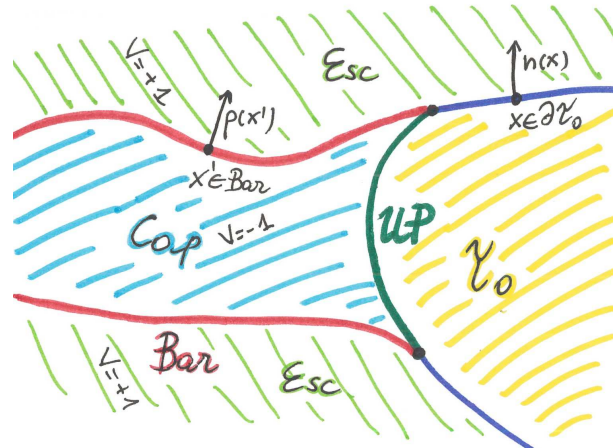 V=+1
Esc
n(x)
p(x')
x∈∂𝒯₀
x'∈Bar
Cap
V=-1
UP
𝒯₀
Bar
Esc
V=+1